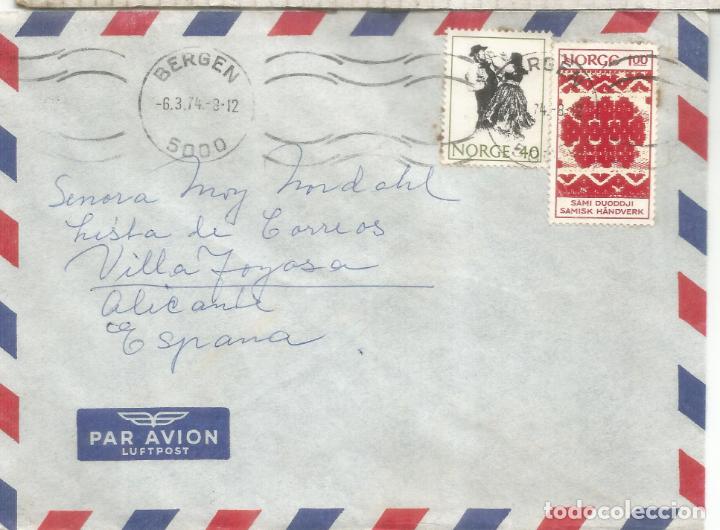 BERGEN
-6.3.74.-8-12
5000
NORGE 40
NORGE 100
SAMI DUODDJI
SAMISK HÅNDVERK
RGEN
74.-8-
Senora Moy Nordahl
Lista de Correos
Villa Joyosa
Alicante
España
PAR AVION
LUFTPOST
todocoleccion.net